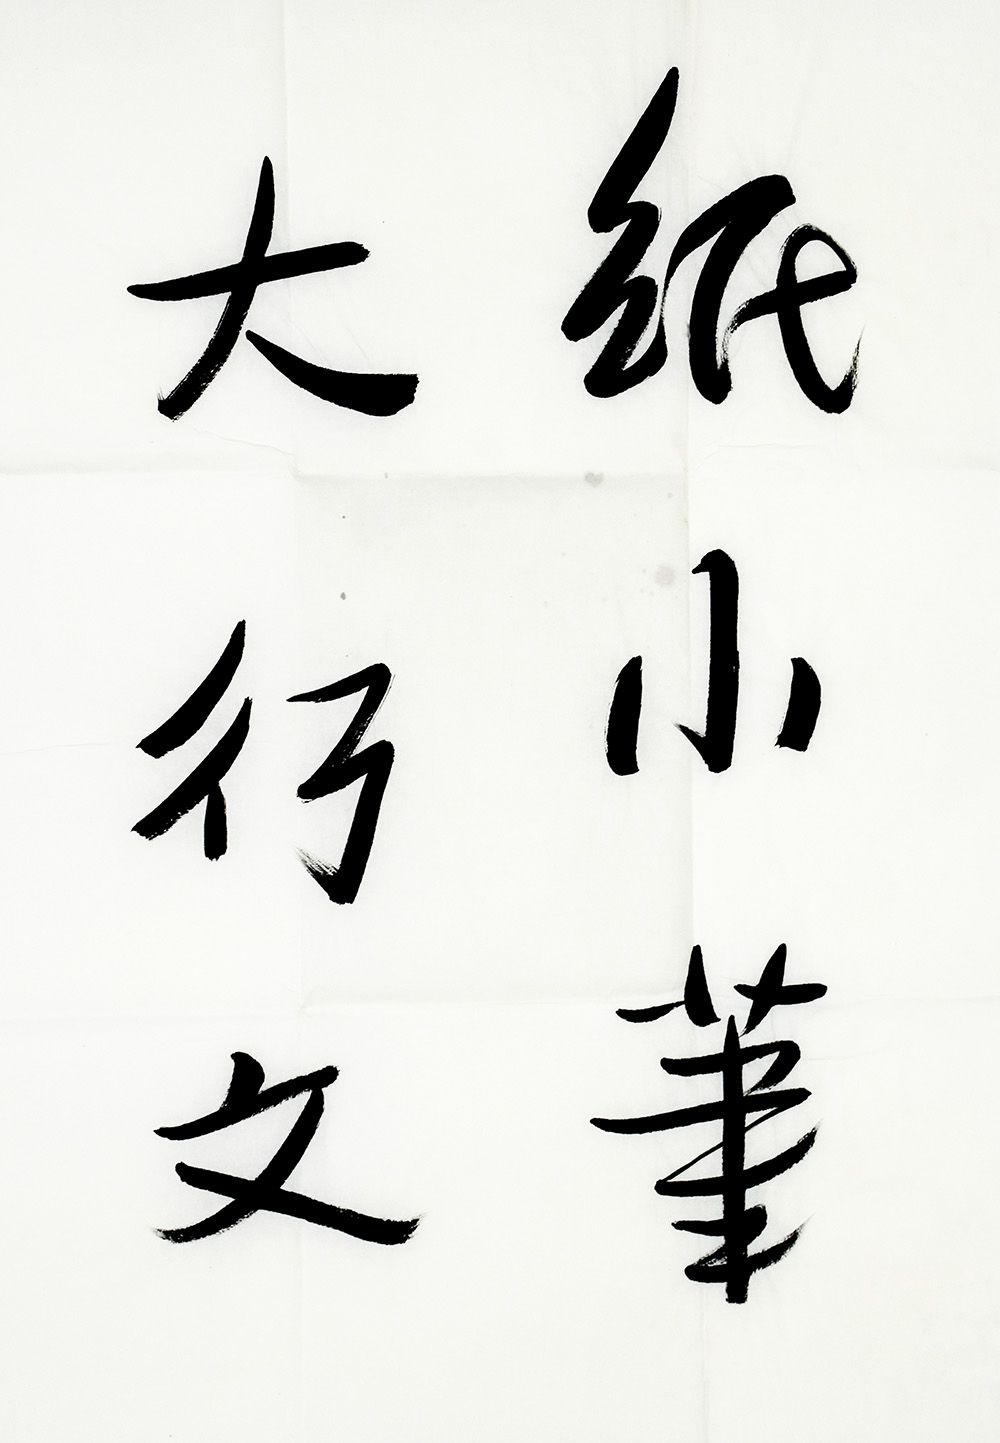 紙小筆
大行文